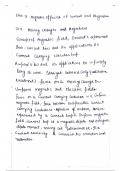 Unit-3 Magnetic effects of current and Magnetism
Ch-4 Moving charges and Magnetism
Concept of magnetic field, Oersted's experiment
Biot-Savart law and its applications to
Current Carrying circular loop.
Ampere's law and its applications to infinitely
long wire. Straight solenoid (only qualitative
treatment), force on a moving charge in
Uniform magnetic and electric fields.
Force on a Current Carrying conductor in a Uniform
magnetic field, force between two parallel current
Carrying conductors - definition of ampere, torque
experienced by a current loop in uniform magnetic
field, Current loop as a magnetic dipole and its magnetic
dipole moment, moving coil galvanometer - its
Current sensitivity & conversion to ammeter and
voltmeter.